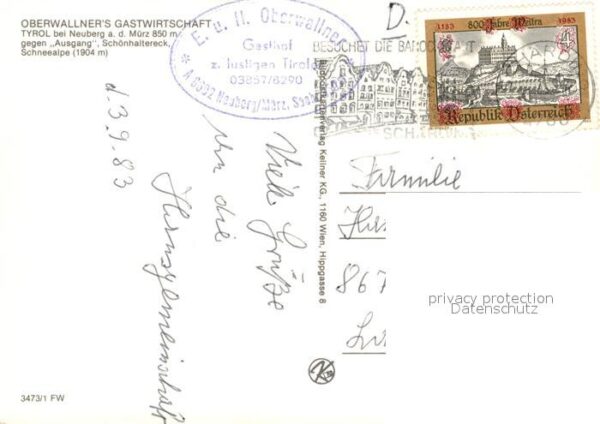 OBERWALLNER'S GASTWIRTSCHAFT
TYROL bei Neuberg a. d. Mürz 850 m
gegen „Ausgang", Schönhaltereck,
Schneealpe (1904 m)
E. u. H. Oberwallner
Gasthof
z. lustigen Tiroler
03857/8290
A 8692 Neuberg/Mürz,
D.
BESUCHET DIE BAROCKSTADT
SCHÄRDING
1183 800 Jahre Weitra 1983
S 4
Republik Österreich
d. 3.9.83
Viele Grüße
an die
Hausgemeinschaft
Kellner KG., 1160 Wien, Hippgasse 8
Familie
867
privacy protection
Datenschutz
3473/1 FW